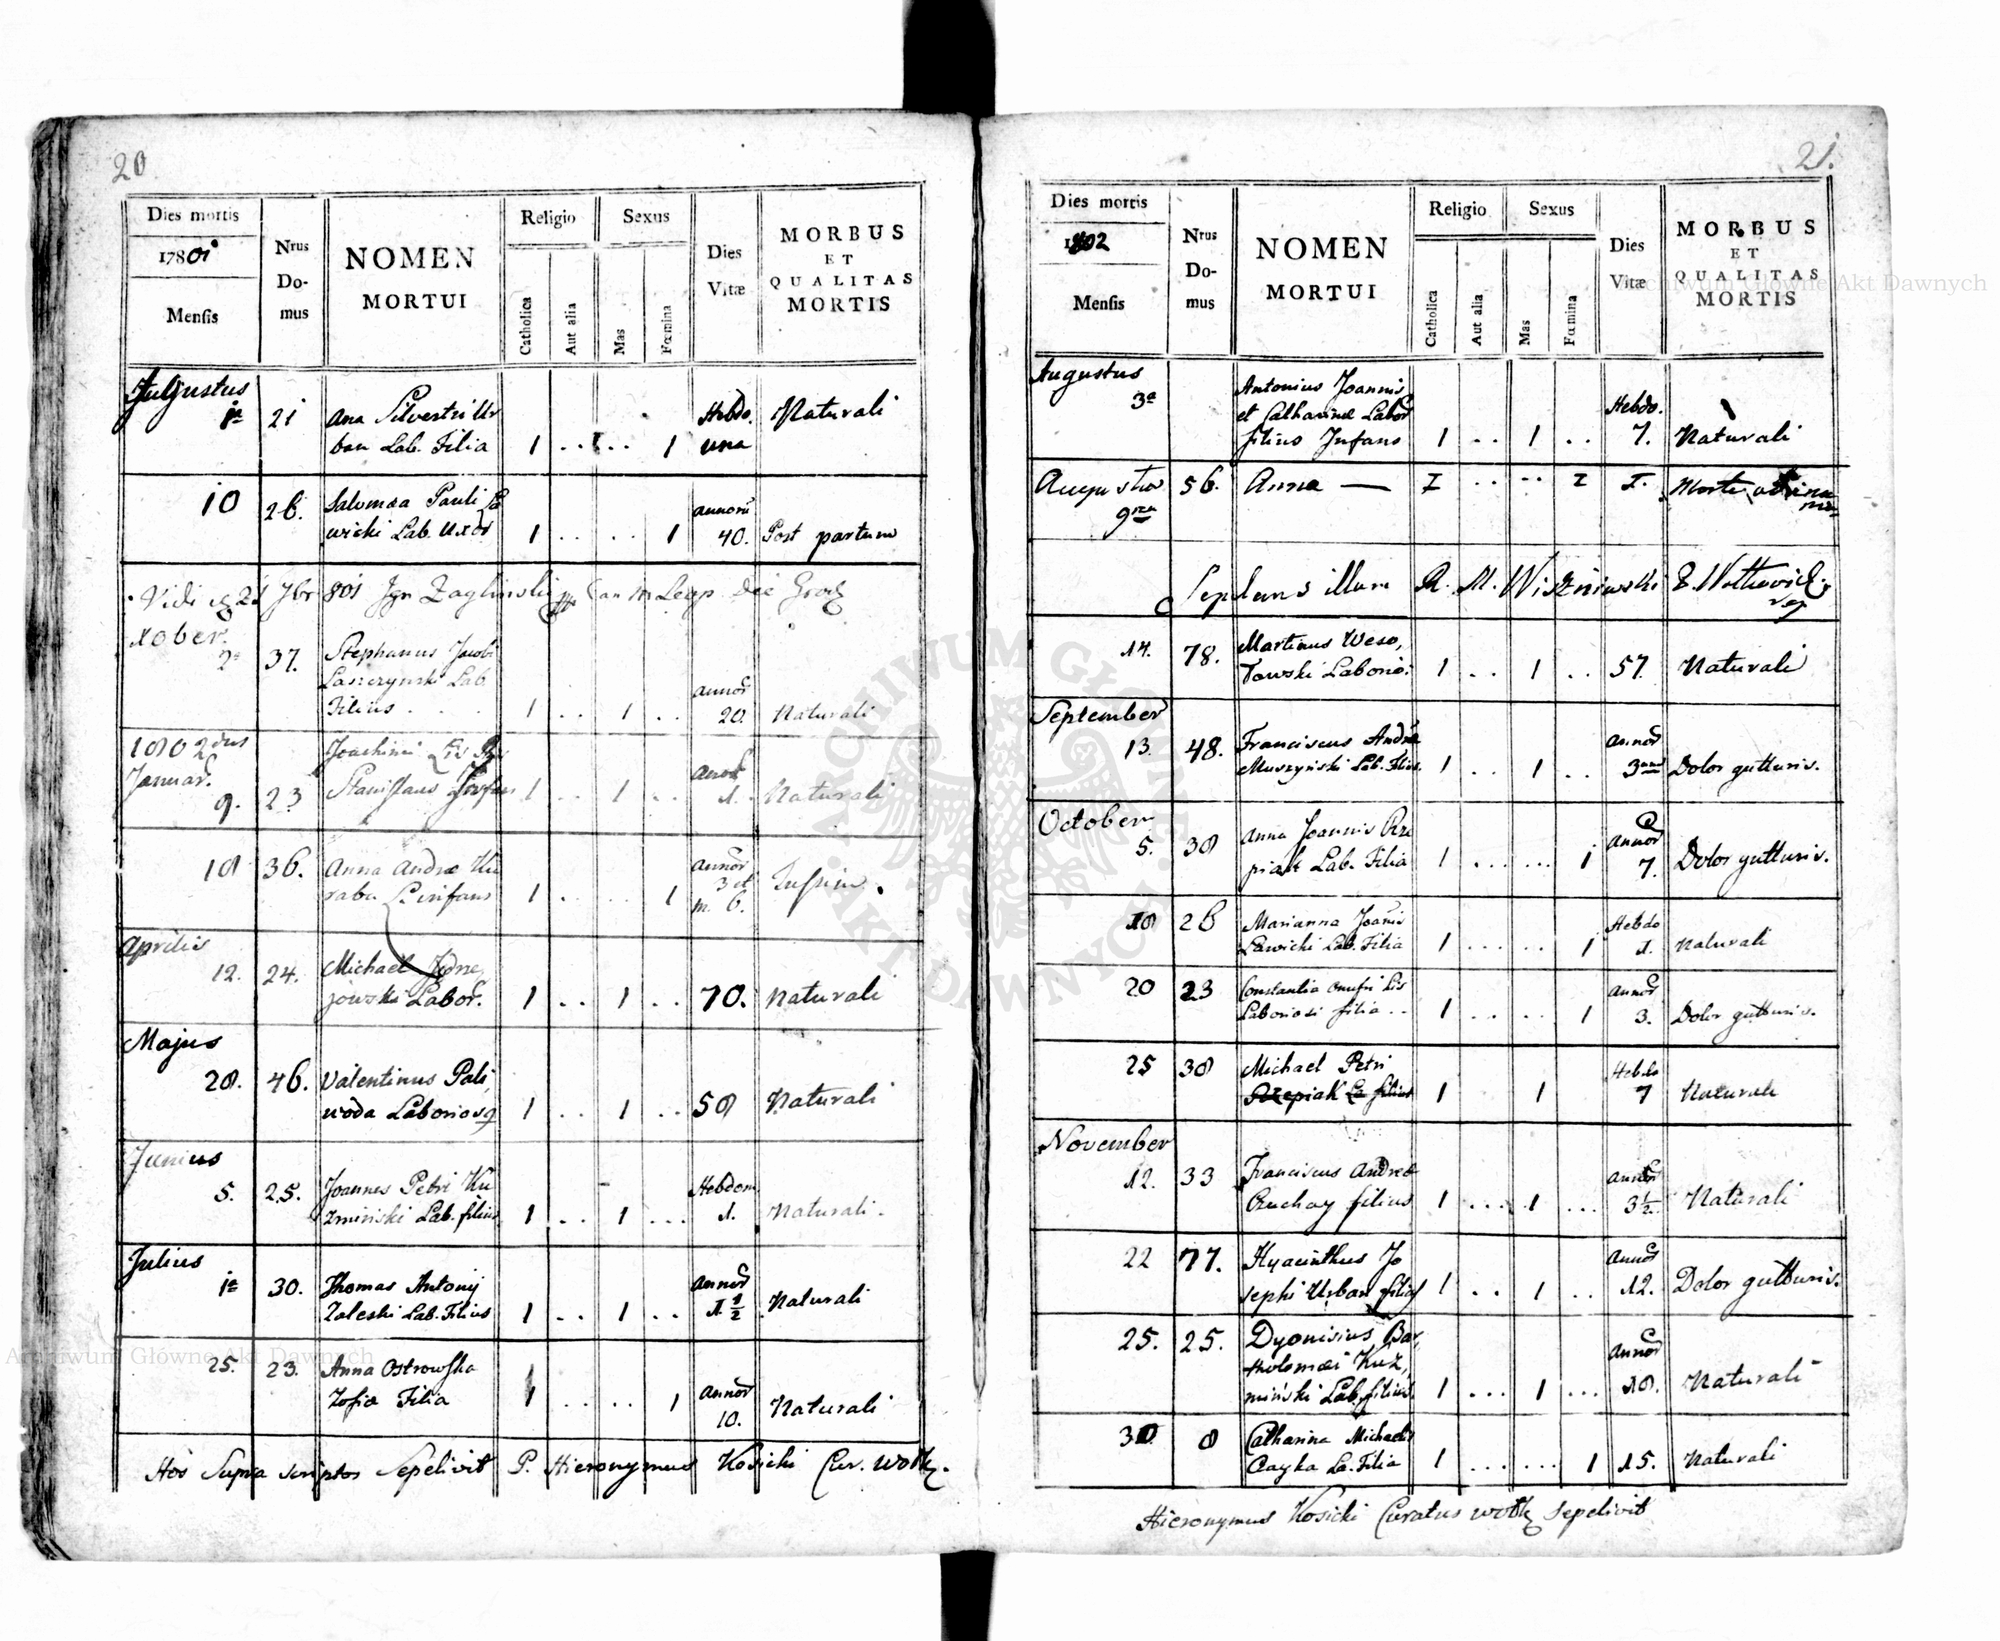 20
Dies mortis
1780i
Mensis
Nrus
Do-
mus
NOMEN
MORTUI
Religio
Catholica
Aut alia
Sexus
Mas
Fœmina
Dies
Vitæ
MORBUS
ET
QUALITAS
MORTIS
Augustus
1a 21 Ana Silvestri Ur
ban Lab. Filia 1 . . . . 1 Hebdo. una Naturali
10 26. Salomea Pauli
wicki Lab. Uxor 1 . . . . 1 annorũ 40. Post partum
Vidi 21 7br 801 Ign Zagliński
Xober.
2a 37. Stephanus Jacobi
Laszczynski Lab.
Filius . . . 1 . . 1 . . annor 20. Naturali
1802dus
Januar.
9. 23 Joachimi Lis
Stanislaus Infans 1 . . 1 . . 1. Naturali
18 36. Anna Andreæ Ku
raba infans 1 . . . . 1 annor 3 et m. 6.
Aprilis
12. 24. Michael Jędrze,
jowski Labor. 1 . . 1 . . 70. Naturali
Majus
28. 46. Valentinus Pali,
woda Laborios9 1 . . 1 . . 58 Naturali
Junius
5. 25. Joannes Petri Ku
zmiński Lab. filius 1 . . 1 . . . Hebdom 1. Naturali.
Julius
1a 30. Thomas Antonij
Zaleski Lab. Filius 1 . . 1 . . annor 1 1/2 Naturali
25. 23. Anna Ostrowska
Zofiæ Filia 1 . . . . 1 annor 10. Naturali
Hos Supra scriptos Sepelivit P. Hieronymus Kosicki Cur. Wołk.
21.
Dies mortis
1802
Mensis
Nrus
Do-
mus
NOMEN
MORTUI
Religio
Catholica
Aut alia
Sexus
Mas
Fœmina
Dies
Vitæ
MORBUS
ET
QUALITAS
MORTIS
Augustus
3a Antonius Joannis
et Catharinæ Labor
filius Infans 1 . . 1 . . Hebdo. 7. Naturali
9na 56. Anna — I . . . . I I.
Sepeliens illum R. M. Wiszniewski
14. 78. Martinus Weso,
łowski Laborio: 1 . . 1 . . 57 Naturali
September
13. 48. Franciscus Andreæ
Muszyński Lab. Filius. 1 . . 1 . . annor Dolor gutturis.
October
5. 38 Anna Joannis Rze
piak Lab. Filia 1 . . . . . . 1 Annor 7. Dolor gutturis.
18 26 Marianna Joannis
Ławicki Lab. Filia 1 . . . . . 1 Hebdo 1. Naturali
20 23 Constantia Onufri Lis
Laboriosi filia . . 1 . . . . . 1 Annor 3. Dolor gutturis.
25 38 Michael Petri
Rzepiak La filius 1 1 Hebdo 7 Naturali
November
12. 33 Franciscus Andreæ
filius 1 . . . 1 . . . annor 3 1/2. Naturali
22 77. Hyacinthus Jo
sephi Urban filius 1 . . 1 . . Annor 12. Dolor gutturis.
25. 25. Dyonisius Bar,
tholomæi Kuź,
miński Lab. filius. 1 . . . 1 . . . Annor 18. Naturali
30 8 Catharina Michaelis
Czayka La. Filia 1 . . . . . . 1 15. Naturali
Hieronymus Kosicki Curatus Wołk sepelivit
ARCHIWUM GŁÓWNE AKT DAWNYCH
Archiwum Główne Akt Dawnych
Archiwum Główne Akt Dawnych